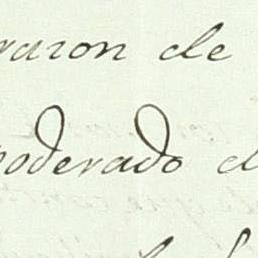 razon de
poderado d